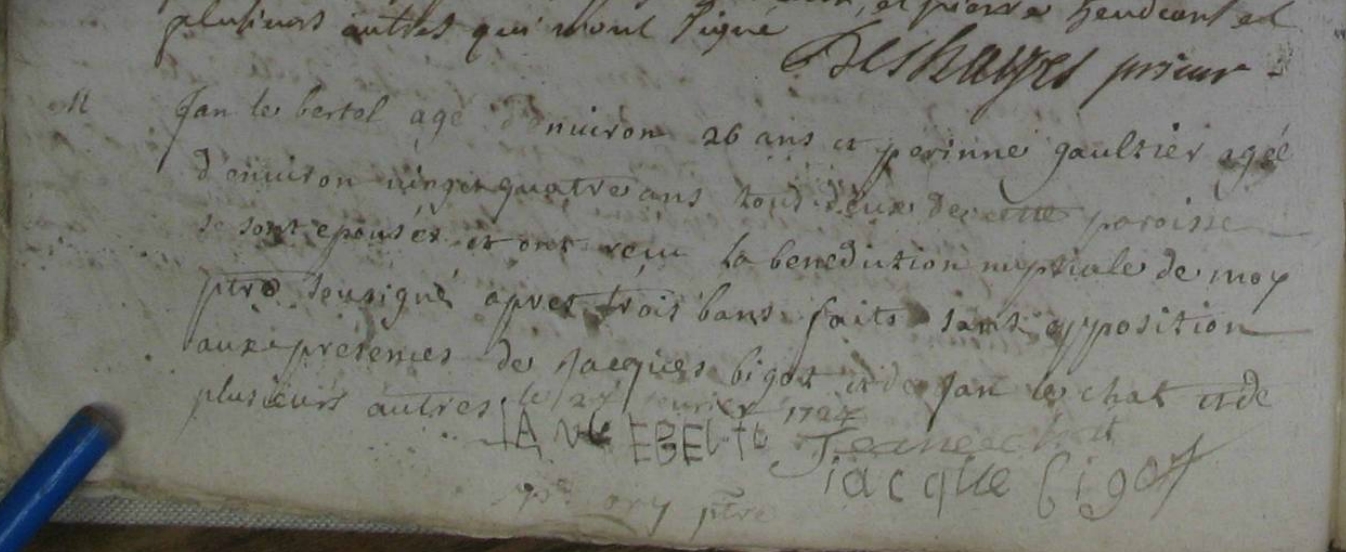 et pierre heudeont et
plusieurs autres qui n'ont signé
Deshayes prieur -
M Jan le bertel agé d'enuiron 26 ans et perinne gaultier agéé
d'enuiron vingt quatre ans tous deux de cette paroisse
se sont epousés et ont reçu la benediction nuptiale de moy
ptre sousigné apres trois bans faits sans opposition
aux presences de Jacques bigot et de Jan le chat et de
plusieurs autres le 24 feurier 1724
JAN LEBELTE Jean lechat
iacque bigot
ory ptre